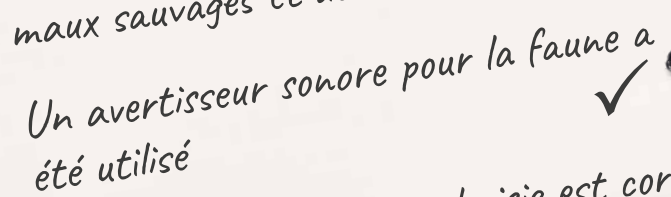 maux sauvages et
Un avertisseur sonore pour la faune a
été utilisé
est